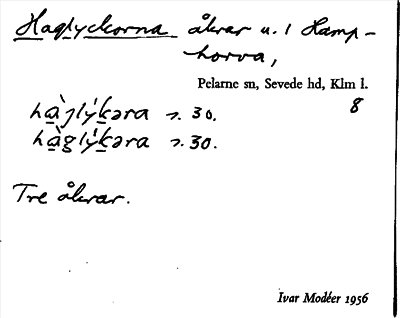 Haglyckorna åkrar u. l Hamp-
horva,
Pelarne sn, Sevede hd, Klm l.
8
hàglýkəra s. 30.
hàglýkəra s. 30.
Tre åkrar.
Ivar Modéer 1956